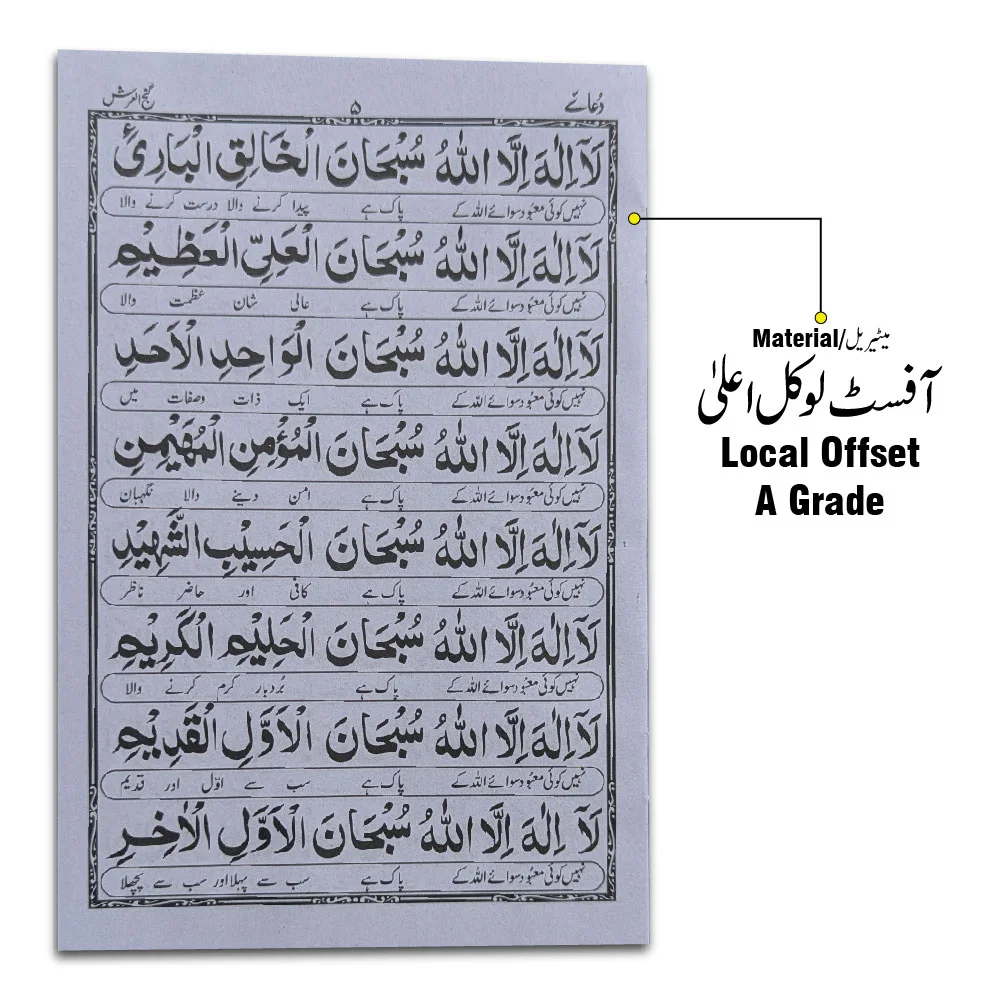 دُعائے ۵ گنج العرش
لَآ اِلٰهَ اِلَّا اللهُ سُبْحَانَ الْخَالِقِ الْبَارِئِ
نہیں کوئی معبُود سوائے اللہ کے پاک ہے پیدا کرنے والا درست کرنے والا
لَآ اِلٰهَ اِلَّا اللهُ سُبْحَانَ الْعَلِيِّ الْعَظِيْمِ
نہیں کوئی معبُود سوائے اللہ کے پاک ہے عالی شان عظمت والا
لَآ اِلٰهَ اِلَّا اللهُ سُبْحَانَ الْوَاحِدِ الْاَحَدِ
نہیں کوئی معبُود سوائے اللہ کے پاک ہے ایک ذات وصفات میں
لَآ اِلٰهَ اِلَّا اللهُ سُبْحَانَ الْمُؤْمِنِ الْمُهَيْمِنِ
نہیں کوئی معبُود سوائے اللہ کے پاک ہے امن دینے والا نگہبان
لَآ اِلٰهَ اِلَّا اللهُ سُبْحَانَ الْحَسِيْبِ الشَّهِيْدِ
نہیں کوئی معبُود سوائے اللہ کے پاک ہے کافی اور حاضر ناظر
لَآ اِلٰهَ اِلَّا اللهُ سُبْحَانَ الْحَلِيْمِ الْكَرِيْمِ
نہیں کوئی معبُود سوائے اللہ کے پاک ہے بُردبار کرم کرنے والا
لَآ اِلٰهَ اِلَّا اللهُ سُبْحَانَ الْاَوَّلِ الْقَدِيْمِ
نہیں کوئی معبُود سوائے اللہ کے پاک ہے سب سے اوّل اور قدیم
لَآ اِلٰهَ اِلَّا اللهُ سُبْحَانَ الْاَوَّلِ الْاٰخِرِ
نہیں کوئی معبُود سوائے اللہ کے پاک ہے سب سے پہلا اور سب سے پچھلا
Material/میٹیریل
آفسٹ لوکل اعلیٰ
Local Offset
A Grade